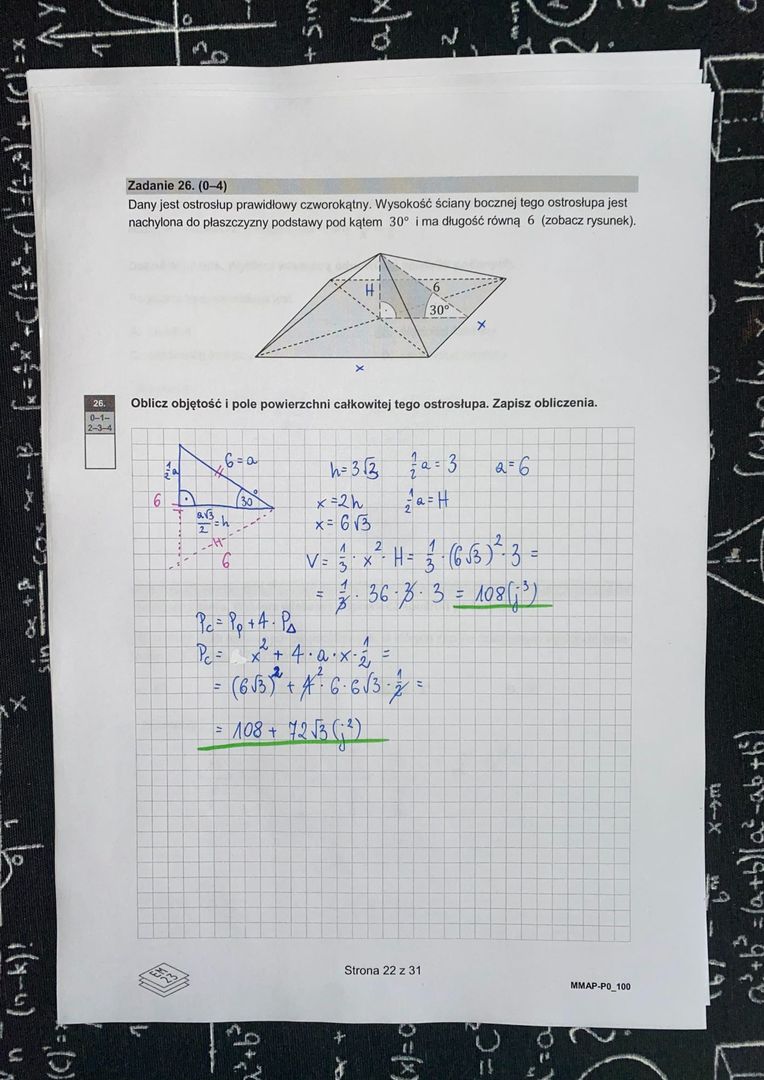 Zadanie 26. (0–4)
Dany jest ostrosłup prawidłowy czworokątny. Wysokość ściany bocznej tego ostrosłupa jest
nachylona do płaszczyzny podstawy pod kątem 30° i ma długość równą 6 (zobacz rysunek).
H
6
30°
x
x
26.
0–1–
2–3–4
Oblicz objętość i pole powierzchni całkowitej tego ostrosłupa. Zapisz obliczenia.
½a
6=a
30°
6
a√3/2 = h
6
h=3√3 ½a=3 a=6
x=2h ½a=H
x=6√3
V= ⅓·x²·H= ⅓·(6√3)²·3 =
= ⅓·36·3·3 = 108(j³)
Pc= Pp+4·P△
Pc= x²+4·a·x·½ =
= (6√3)²+4²·6·6√3·½ =
= 108+72√3(j²)
Strona 22 z 31
MMAP-P0_100